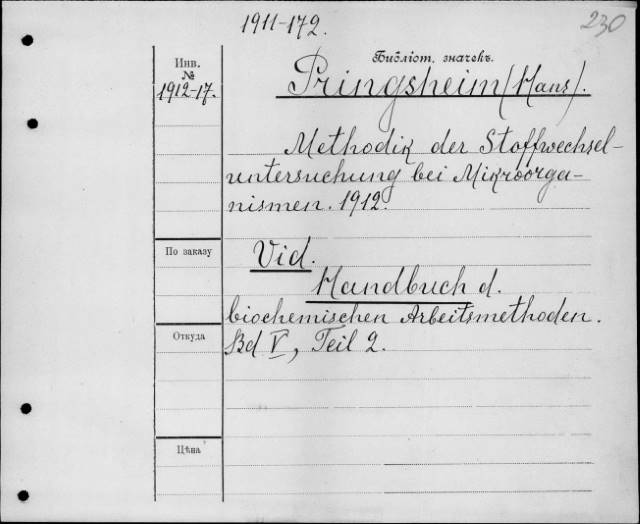 1911-172.
230
Инв.
№
1912-17.
Библіот. значекъ.
Pringsheim (Hans).
Methodik der Stoffwechsel-
untersuchung bei Mikroorga-
nismen. 1912.
По заказу
Vid.
Handbuch d.
biochemischen Arbeitsmethoden.
Откуда
Bd V, Teil 2.
Цѣна